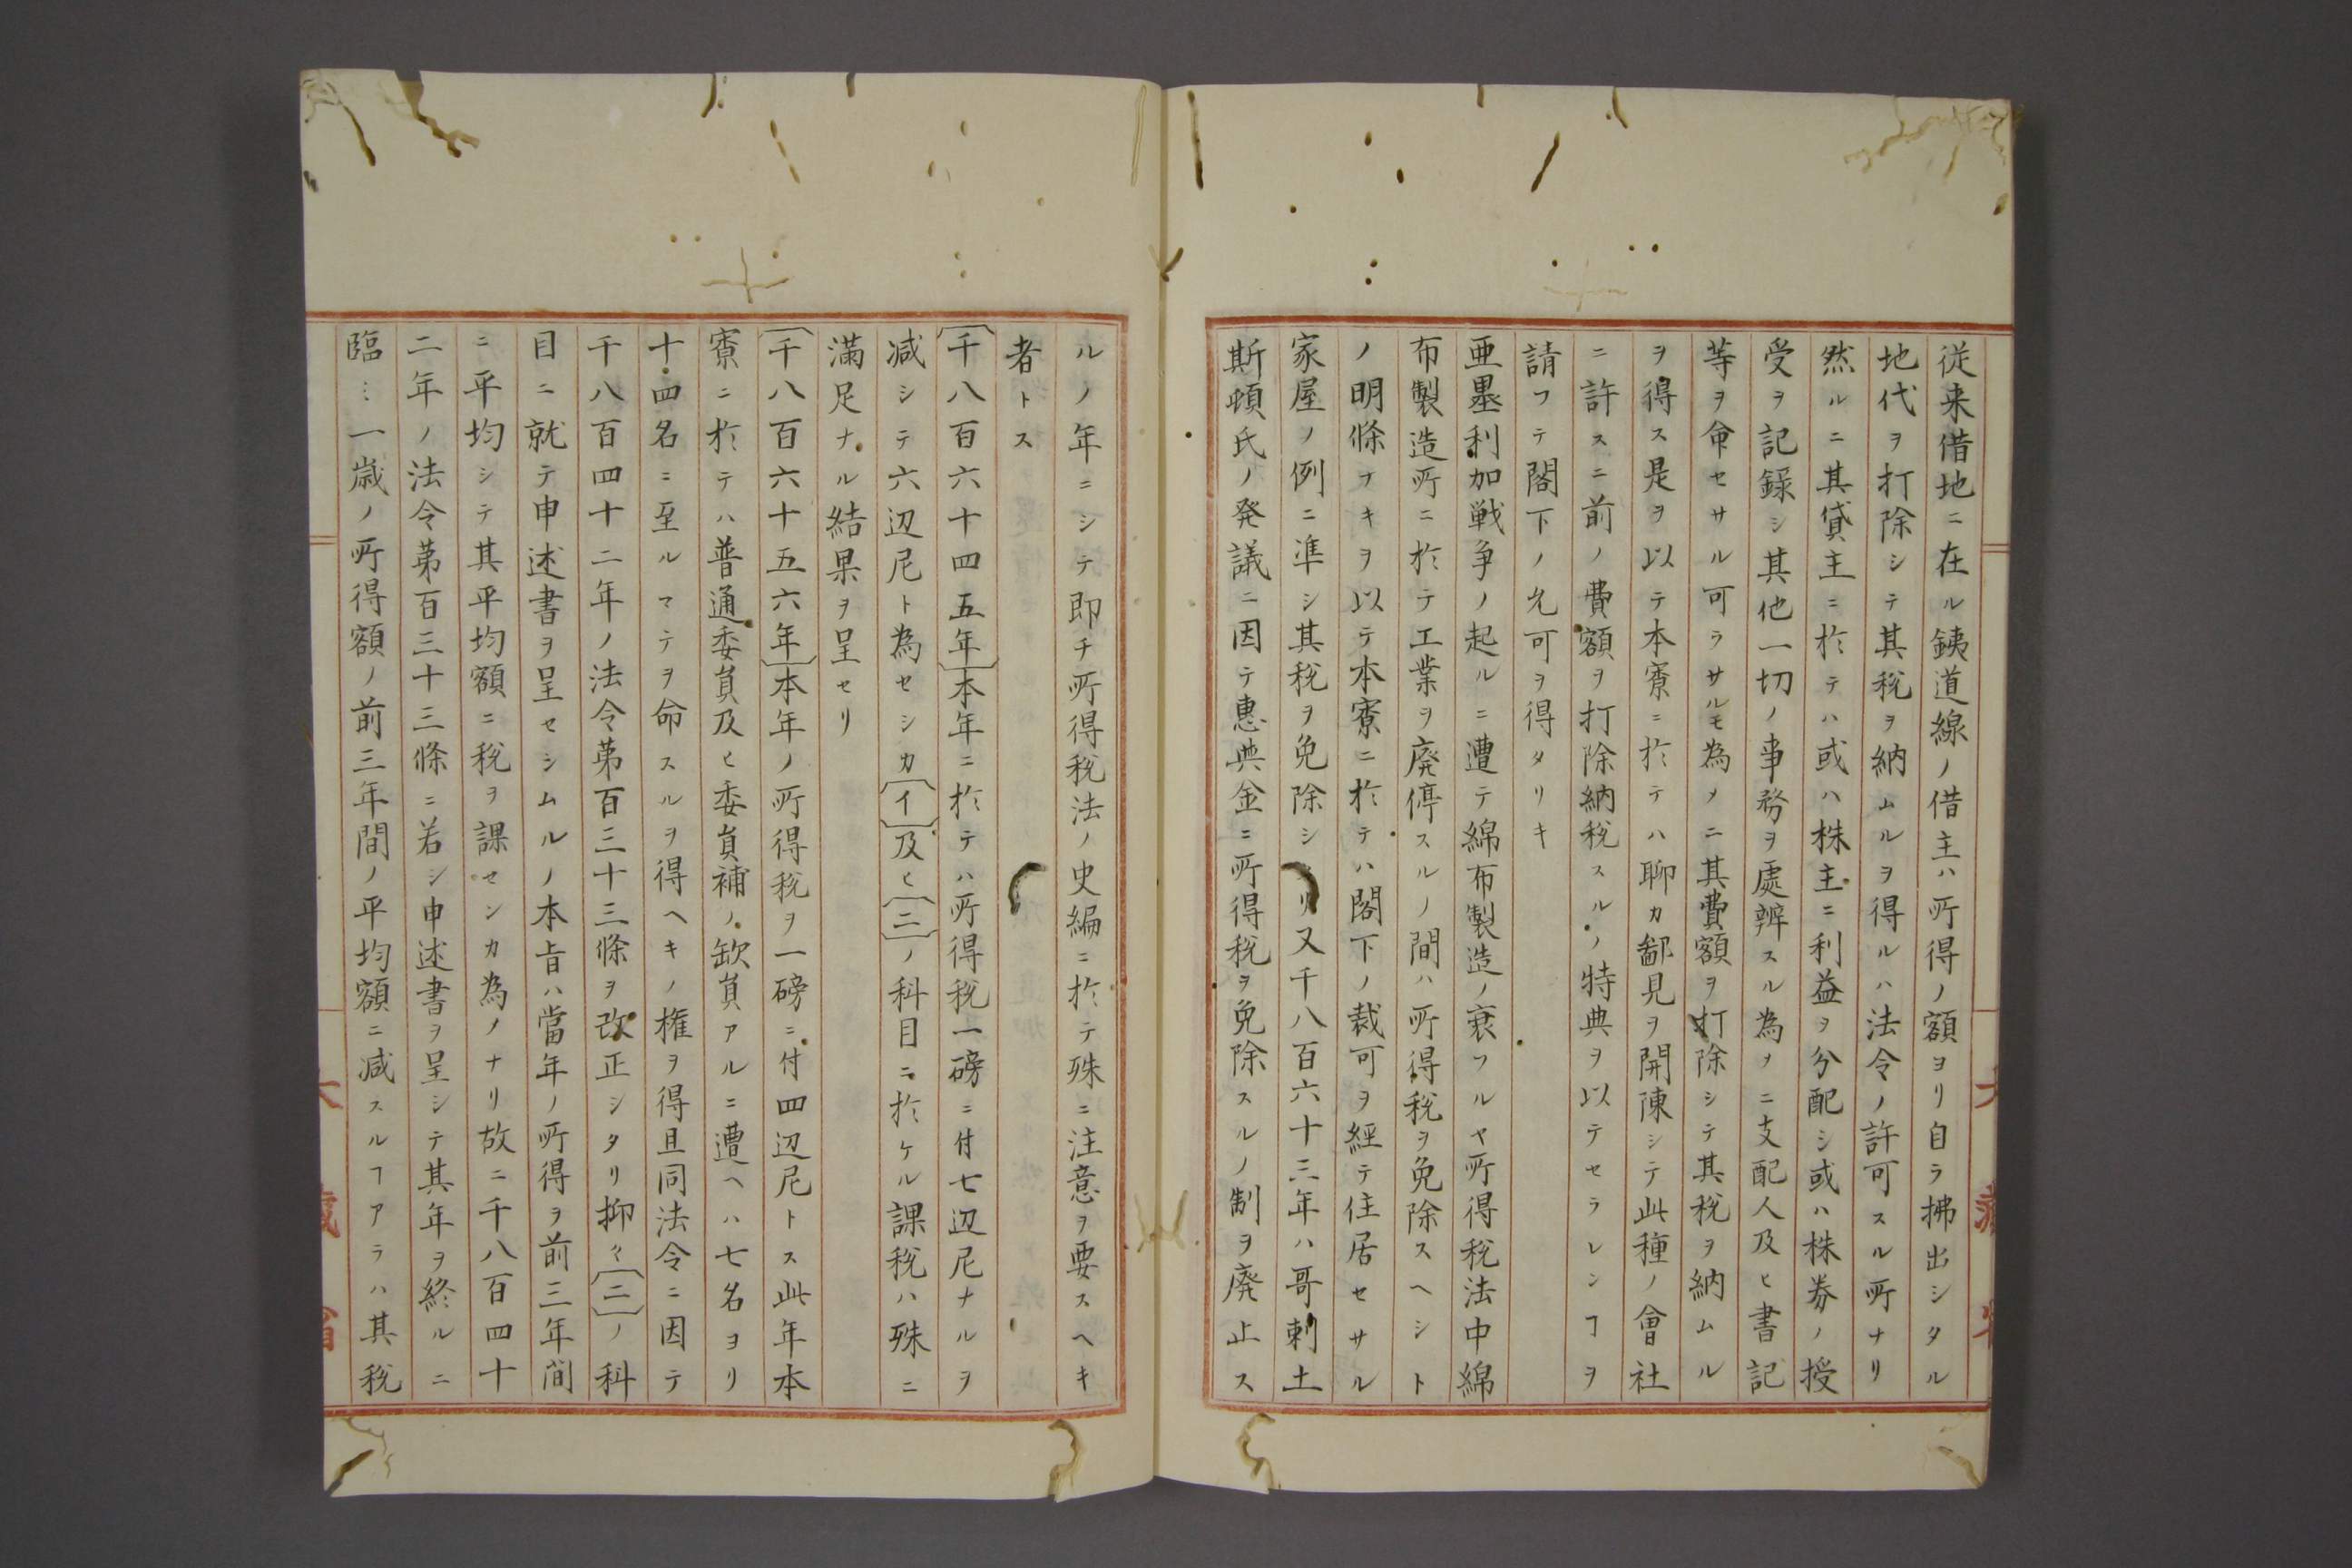 従来借地ニ在ル銕道線ノ借主ハ所得ノ額ヨリ自ラ拂出シタル
地代ヲ打除シテ其税ヲ納ムルヲ得ルハ法令ノ許可スル所ナリ
然ルニ其貸主ニ於テハ或ハ株主ニ利益ヲ分配シ或ハ株券ノ授
受ヲ記録シ其他一切ノ事務ヲ處辨スル為メニ支配人及ヒ書記
等ヲ命セサル可ラサルモ為メニ其費額ヲ打除シテ其税ヲ納ムル
ヲ得ス是ヲ以テ本寮ニ於テハ聊カ鄙見ヲ開陳シテ此種ノ會社
ニ許スニ前ノ費額ヲ打除納税スルノ特典ヲ以テセラレンヿヲ
請フテ閣下ノ允可ヲ得タリキ
亜墨利加戦争ノ起ルニ遭テ綿布製造ノ衰フルヤ所得税法中綿
布製造所ニ於テ工業ヲ廃停スルノ間ハ所得税ヲ免除スヘシト
ノ明條ナキヲ以テ本寮ニ於テハ閣下ノ裁可ヲ経テ住居セサル
家屋ノ例ニ準シ其税ヲ免除シリ又千八百六十三年ハ哥剌土
斯頓氏ノ発議ニ因テ惠典金ニ所得税ヲ免除スルノ制ヲ廃止ス
ルノ年ニシテ即チ所得税法ノ史編ニ於テ殊ニ注意ヲ要スヘキ
者トス
〔千八百六十四五年〕本年ニ於テハ所得税一磅ニ付七辺尼ナルヲ
减シテ六辺尼ト為セシカ〔イ〕及ヒ〔ニ〕ノ科目ニ於ケル課税ハ殊ニ
滿足ナル結果ヲ呈セリ
〔千八百六十五六年〕本年ノ所得税ヲ一磅ニ付四辺尼トス此年本
寮ニ於テハ普通委員及ヒ委員補ノ缼員アルニ遭ヘハ七名ヨリ
十四名ニ至ルマテヲ命スルヲ得ヘキノ権ヲ得且同法令ニ因テ
千八百四十二年ノ法令第百三十三條ヲ改正シタリ抑々〔ニ〕ノ科
目ニ就テ申述書ヲ呈セシムルノ本旨ハ當年ノ所得ヲ前三年間
ニ平均シテ其平均額ニ税ヲ課センカ為メナリ故ニ千八百四十
二年ノ法令第百三十三條ニ若シ申述書ヲ呈シテ其年ヲ終ルニ
臨ミ一歳ノ所得額ノ前三年間ノ平均額ニ减スルヿアラハ其税